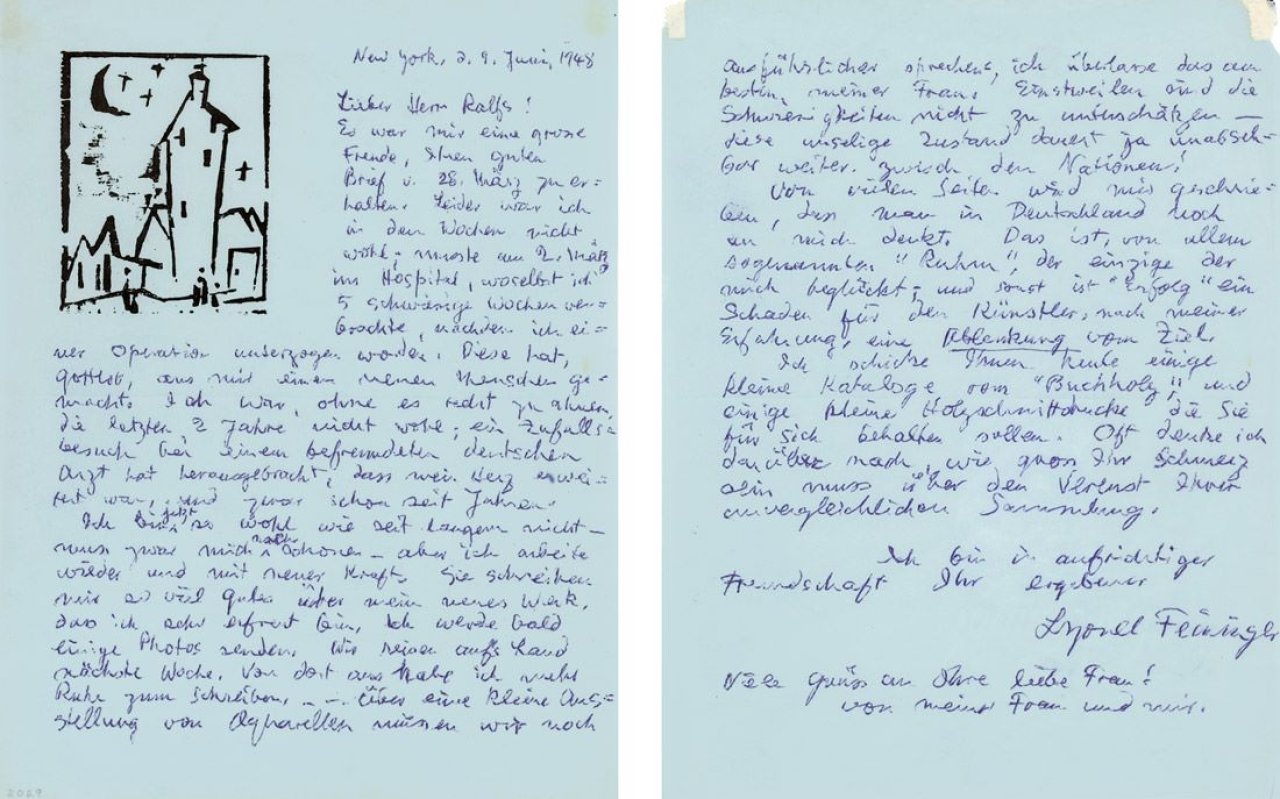 New York, d. 9. Juni, 1948
Lieber Herr Ralfs!
Es war mir eine grosse
Freude, Ihren guten
Brief v. 28. März zu er=
halten. Leider war ich
in den Wochen nicht
wohl; musste am 2. März
ins Hospital, woselbst ich
5 schwierige Wochen ver=
brachte, nachdem ich ei=
ner Operation unterzogen worden. Diese hat,
gottlob, aus mir einen neuen Menschen ge=
macht. Ich war, ohne es recht zu ahnen,
die letzten 2 Jahre nicht wohl; ein Zufalls=
besuch bei einem befreundeten deutschen
Arzt hat herausgebracht, dass mein Herz erwei=
tert war, und zwar schon seit Jahren.
Ich bin jetzt so wohl wie seit langem nicht –
muss zwar mich noch schonen – aber ich arbeite
wieder und mit neuer Kraft. Sie schreiben
mir so viel gutes über mein neues Werk,
das ich sehr erfreut bin, Ich werde bald
einige Photos senden. Wir reisen aufs Land
nächste Woche. Von dort aus habe ich mehr
Ruhe zum Schreiben. – – Über eine kleine Aus=
stellung von Aquarellen müssen wir noch
ausführlicher sprechen, ich überlasse das am
besten, meiner Frau. Einstweilen sind die
Schwierigkeiten nicht zu unterschätzen —
diese unselige Zustand dauert ja unabseh-
bar weiter zwisch den Nationen!
Von vielen Seiten wird mir geschrie-
ben, dass man in Deutschland noch
an mich denkt. Das ist, von allem
sogenannten "Ruhm", der einzige der
mich beglückt; und sonst ist "Erfolg" ein
Schaden für den Künstler, nach meiner
Erfahrung, eine Ablenkung vom Ziel.
Ich schicke Ihnen heute einige
kleine Kataloge vom "Buchholz", und
einige kleine Holzschnittdrucke die Sie
für sich behalten sollen. Oft denke ich
darüber nach, wie gross Ihr Schmerz
sein muss über den Verlust Ihrer
unvergleichlichen Sammlung.
Ich bin in aufrichtiger
Freundschaft Ihr ergebener
Lyonel Feininger
Viele Grüsse an Ihre liebe Frau!
von meiner Frau und mir.